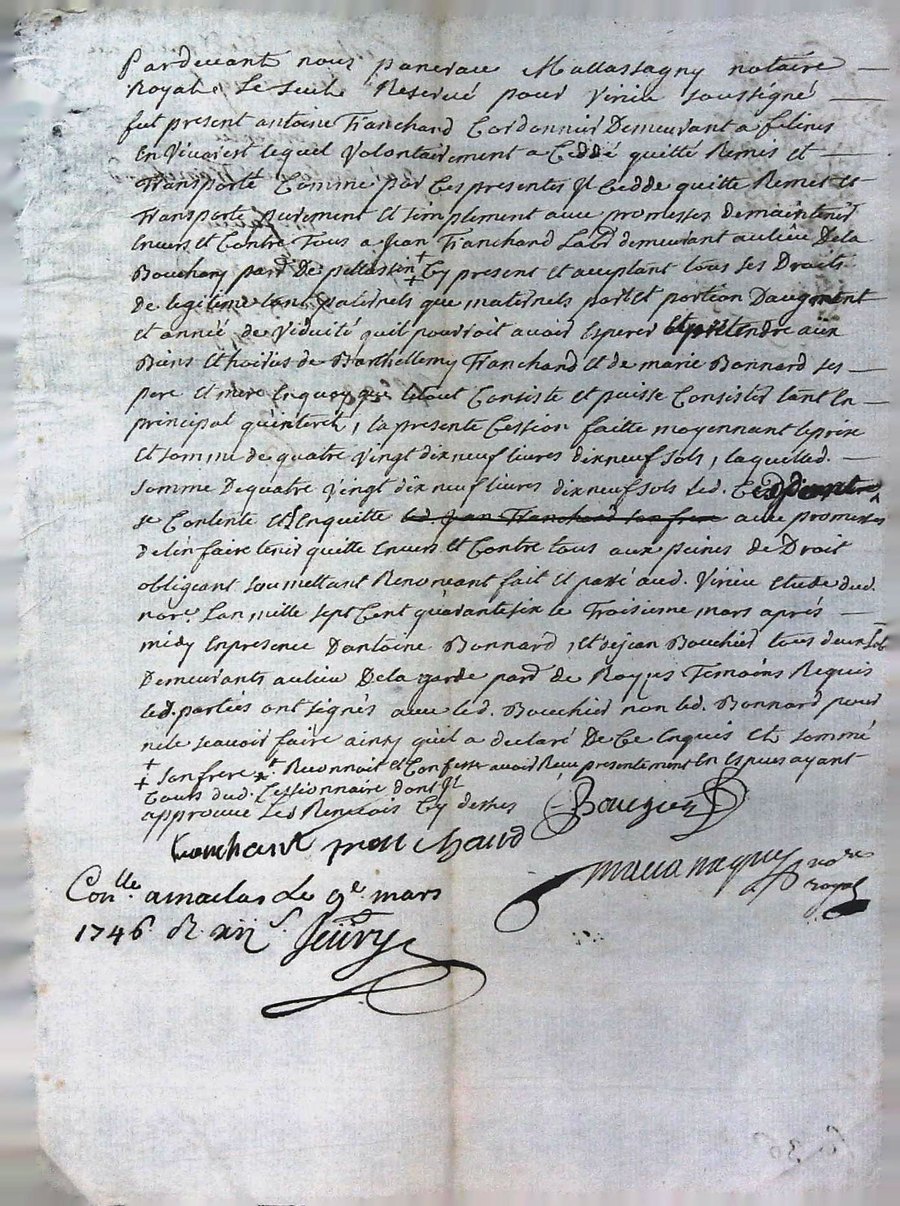 Pardevant nous pancrace Mallassagny notaire
Royal, Le seul Reservé pour Virieu soussigné
fut present antoine Franchard Cordonnier Demeurant a felines
En Vivarest lequel Volontairement a Ceddé quitté Remis et
Transporté Comme par Ces presentes Il Cedde quitte Remet et
Transporte purement et simplement avec promesses de maintenir
Envers et Contre Tous a Jean Franchard Labr demeurant au lieu De la
Bouchany parsse De pellassin + Cy present et acceptant tous ses Droits
de legitime tant paternels que maternels part et portion Daugment
et année de Viduité quil pourroit avoir Esperer Et pretendre aux
Biens et hoiries de Barthellemy Franchard et de marie Bonnard ses
pere et mere En quoy que letout Consiste et puisse Consister tant En
principal quinterets, la presente Cession faitte moyennant le prix
et somme de quatre Vingt dix neuf livres dix neuf sols, laquelle d.
somme De quatre Vingt dix neuf livres dix neuf sols led. Ceddient
se Contente et Enquitte led. Jean Franchard son frere avec promesses
de l'en faire tenir quitte Envers et Contre tous aux peines de Droit
obligeant soumettant Renonceant fait et passé aud. Virieu Etude dud.
nore. Lan mille sept Cent quarante six le Troisieme mars aprés
midy En presence Dantoine Bonnard, et de jean Bouchier tous deux Lab
Demeurants au lieu De la garde parsse de Royus Temoins Requis
led. parties ont signés avec led. Bouchier non led. Bonnard pour
ne le scavoir faire ainsy quil a declaré De Ce Enquis et sommé
+ son frere + Reconnoit et Confesse avoir Receu presentement En Especes ayant
Cours dud. Cessionnaire dont Il
approuve Les Renvois Cy dessus
franchard
Conlle a maclas Le 9e mars
1746 R xii s.
nore
royal